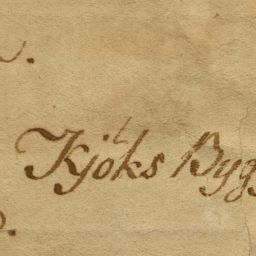 Kjöks Byg